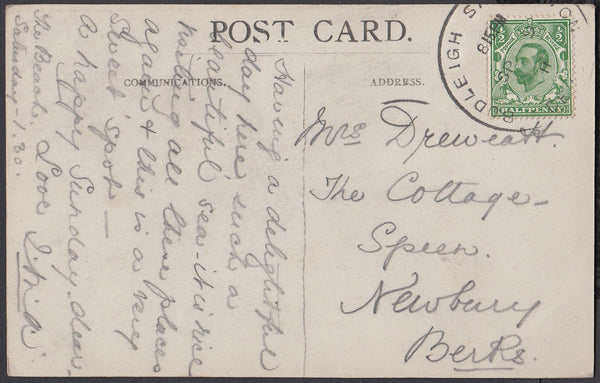 POST CARD.
COMMUNICATIONS.
ADDRESS.
HALFPENNY
Having a delightful
day here such a
beautiful sea - it is nice
noting all these places
again & this is a very
sweet spot -
a happy Sunday dear
The Beach. Love
Saturday - 1.30.
Mrs Dreweatt.
The Cottage -
Speen.
Newbury
Berks.